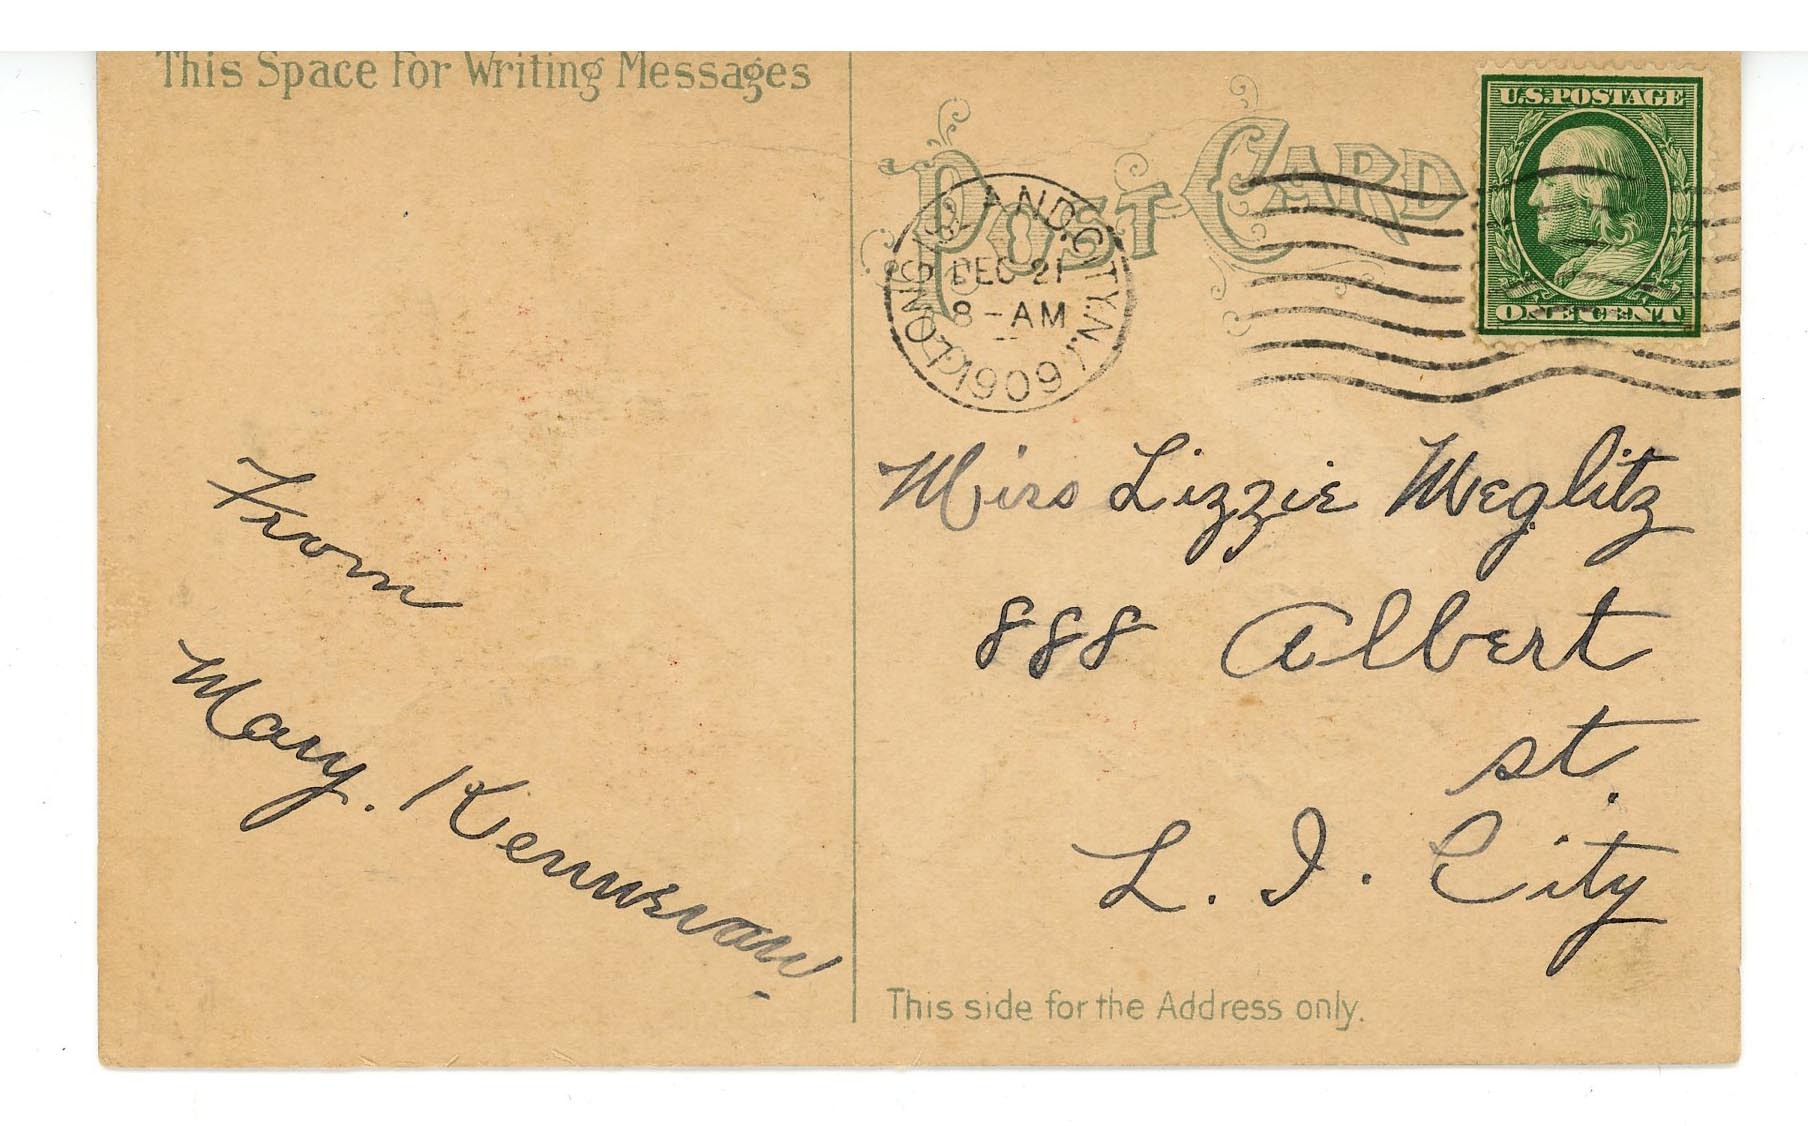 This Space For Writing Messages
POST CARD
U.S. POSTAGE
ONE CENT
LONG ISLAND CITY, N.Y.
DEC 21
8 - AM
1909
From
Mary.
Miss Lizzie Meglitz
888 Albert
st.
L. I. City
This side for the Address only.